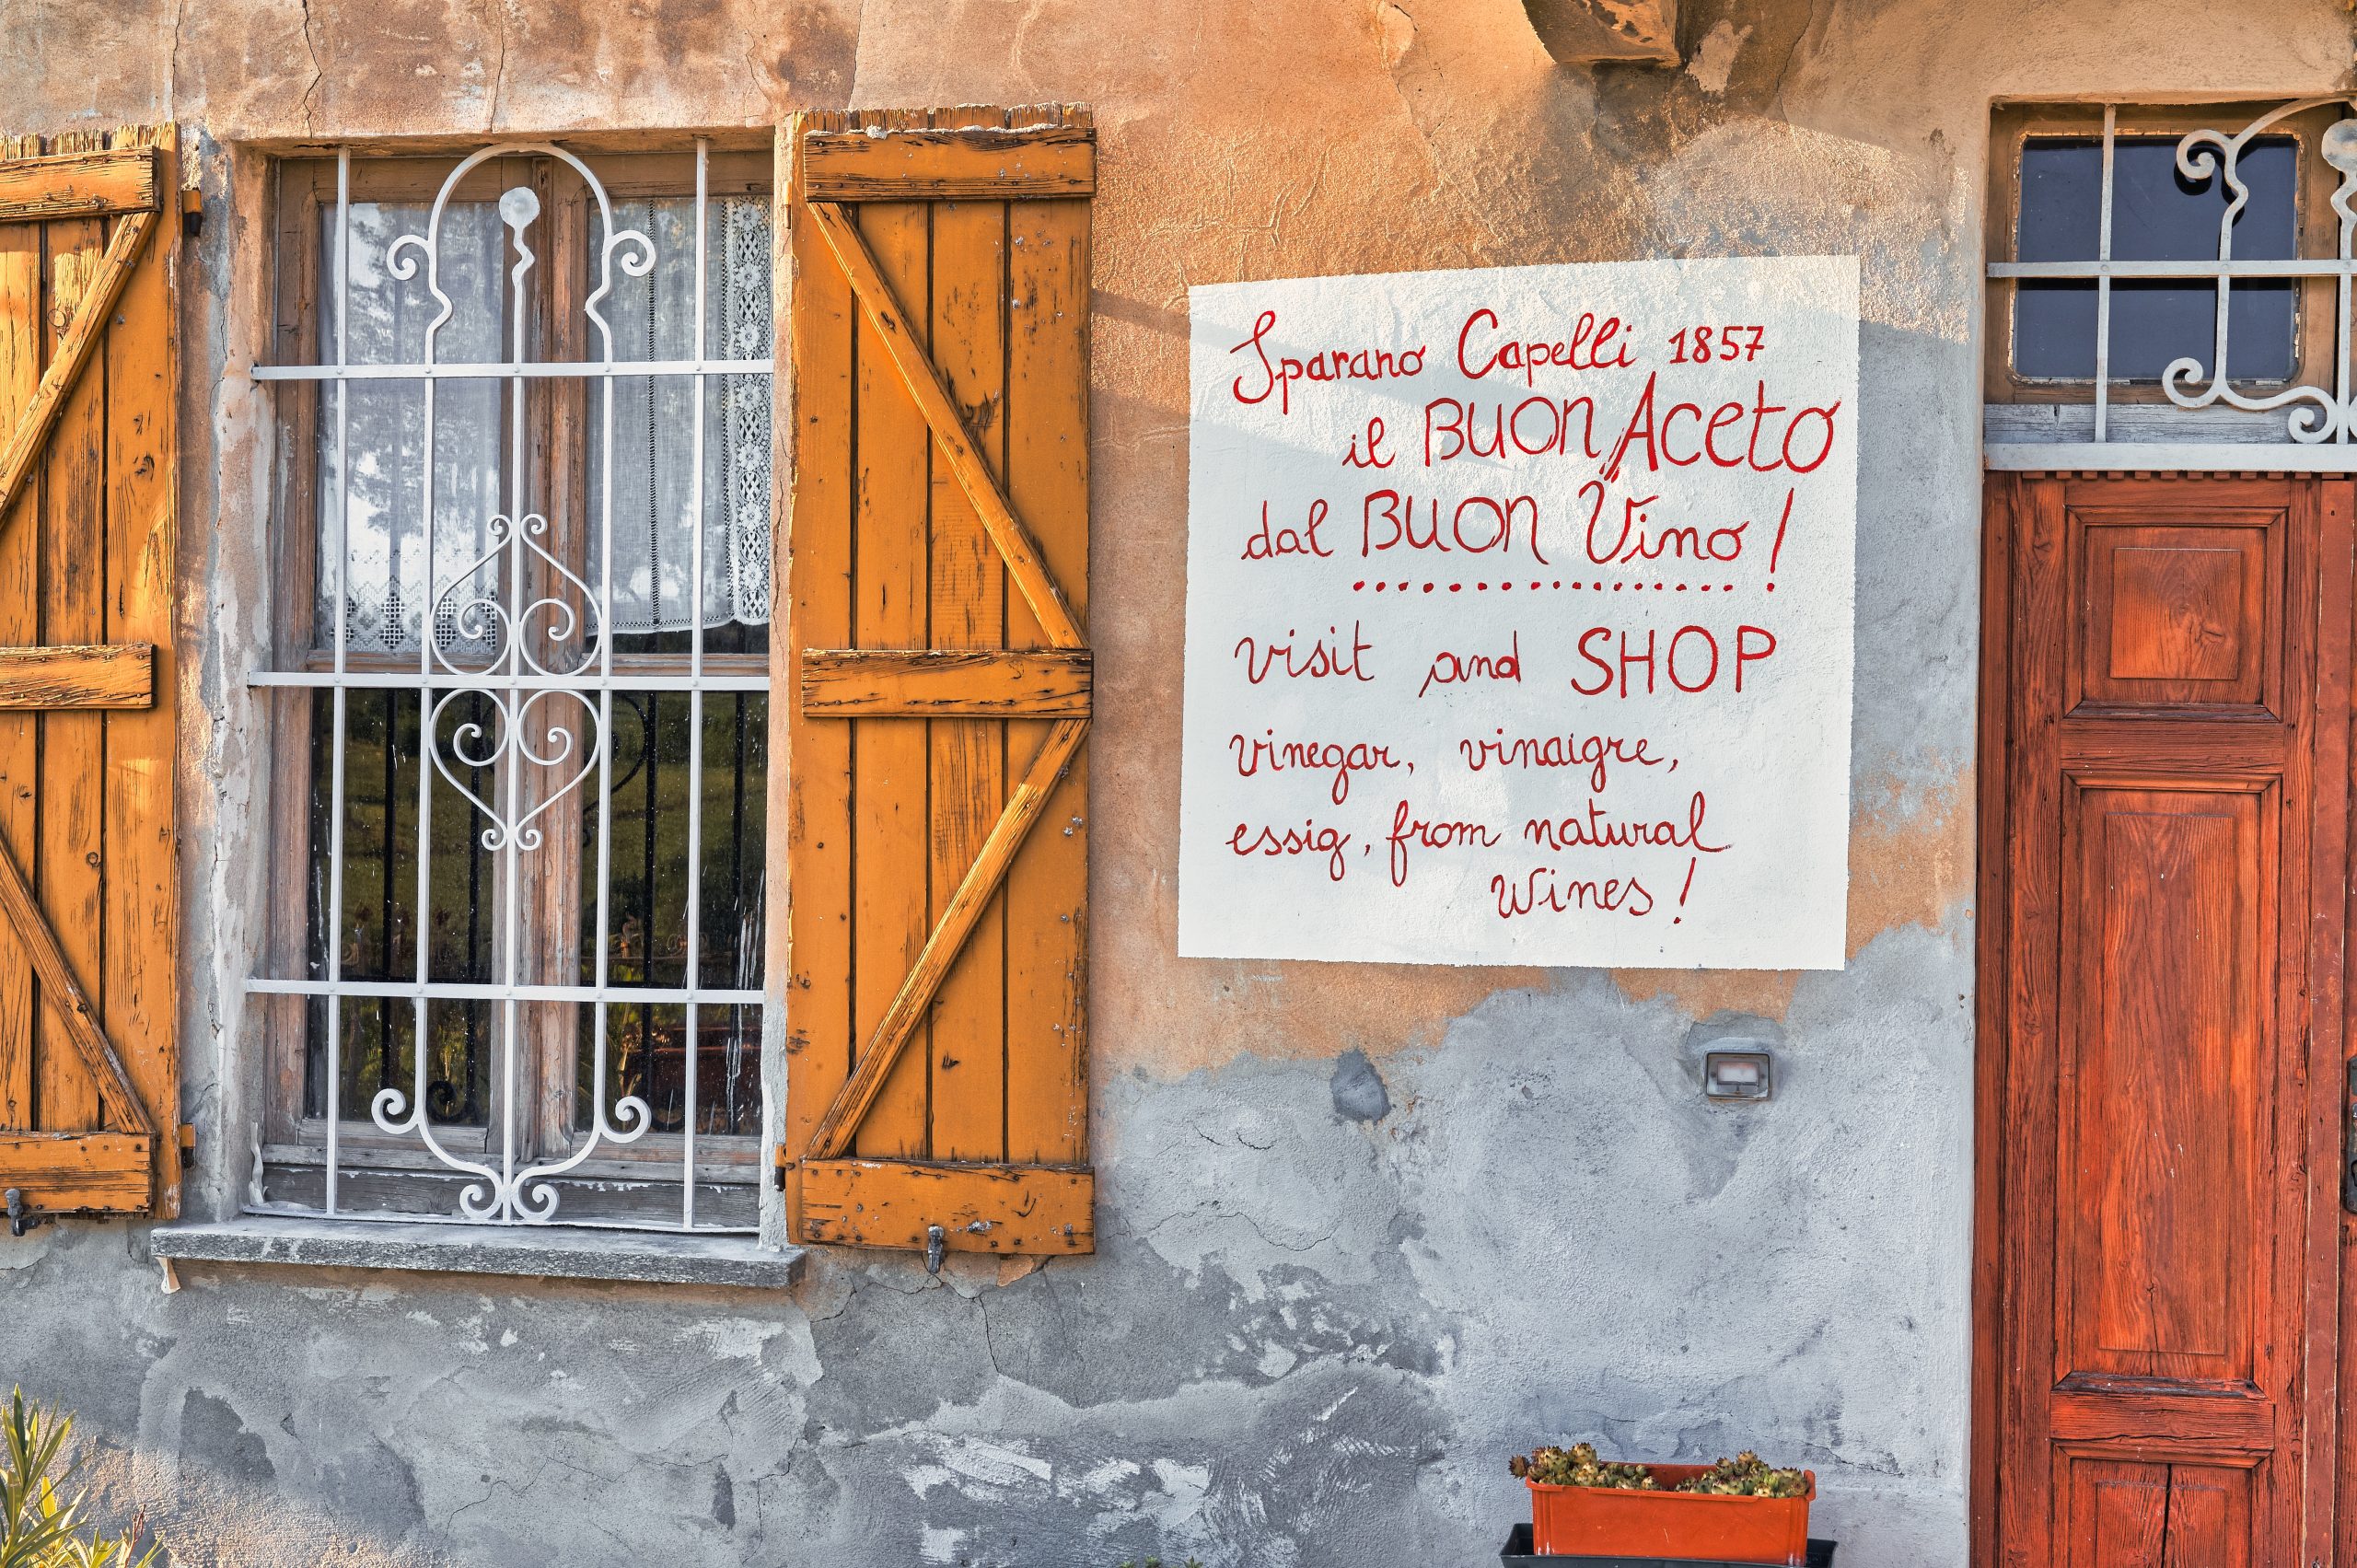 Sparano Capelli 1857
il BUON Aceto
dal BUON Vino!
visit and SHOP
vinegar, vinaigre,
essig, from natural
wines!